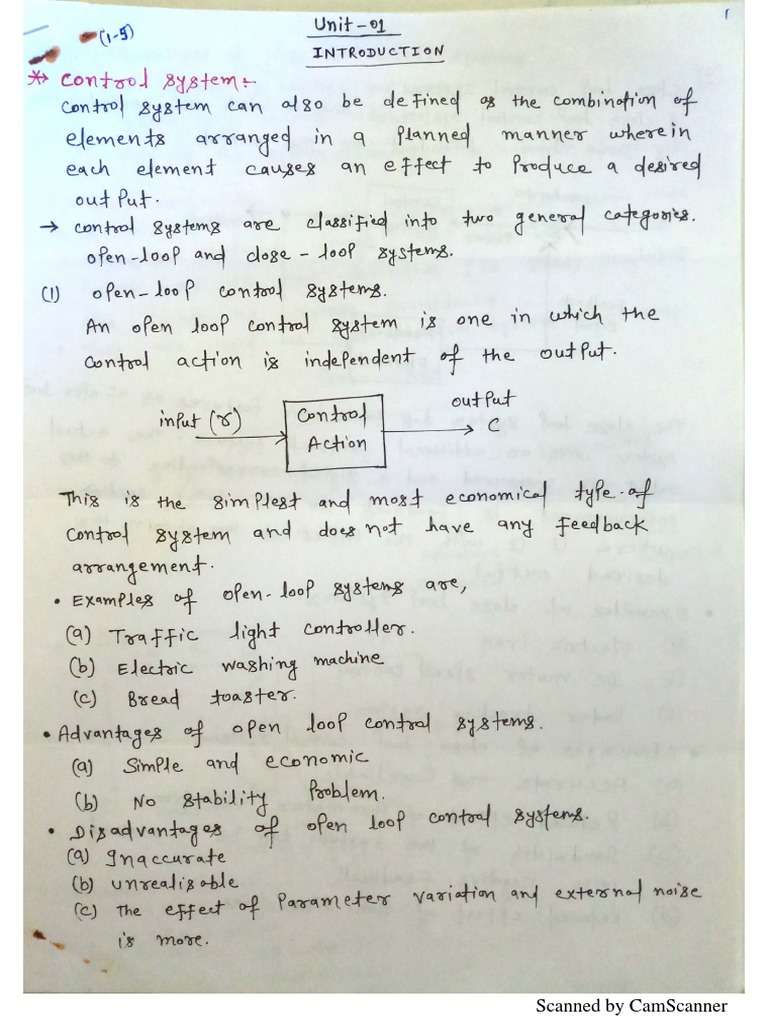 1
(1-5)
Unit-01
INTRODUCTION
* control system:-
control system can also be defined as the combination of
elements arranged in a planned manner wherein
each element causes an effect to produce a desired
output.
→ control systems are classified into two general categories.
open-loop and close-loop systems.
(1) open-loop control systems.
An open loop control system is one in which the
control action is independent of the output.
input (r)
Control
Action
output
C
This is the simplest and most economical type of
control system and does not have any feedback
arrangement.
• Examples of open-loop systems are,
(a) Traffic light controller.
(b) Electric washing machine
(c) Bread toaster.
• Advantages of open loop control systems.
(a) Simple and economic
(b) No stability problem.
• Disadvantages of open loop control systems.
(a) Inaccurate
(b) unrealisable
(c) The effect of parameter variation and external noise
is more.
Scanned by CamScanner